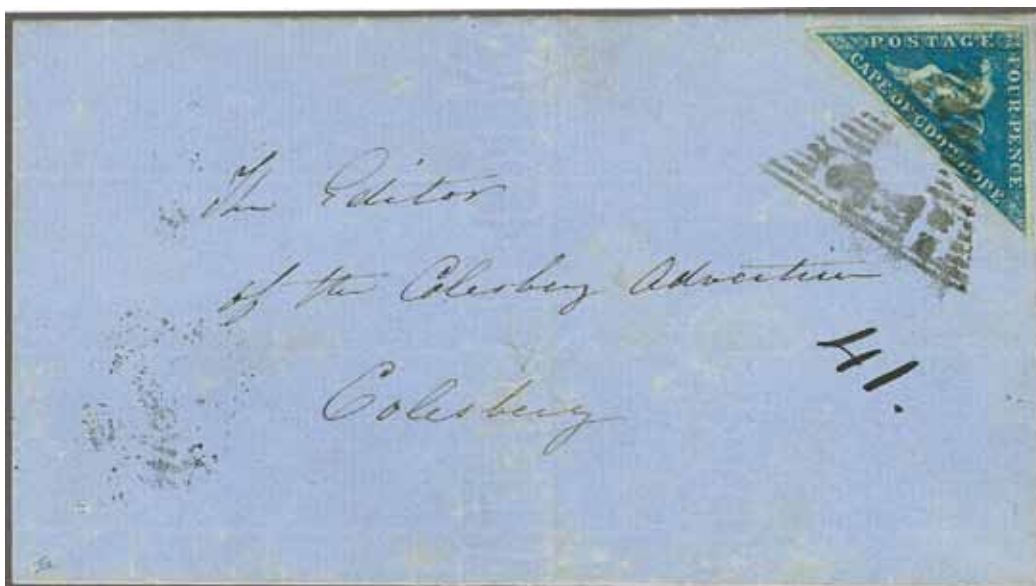 POSTAGE
FOUR PENCE
CAPE OF GOOD HOPE
The Editor
of the Colesberg Advertiser
41.
Colesberg